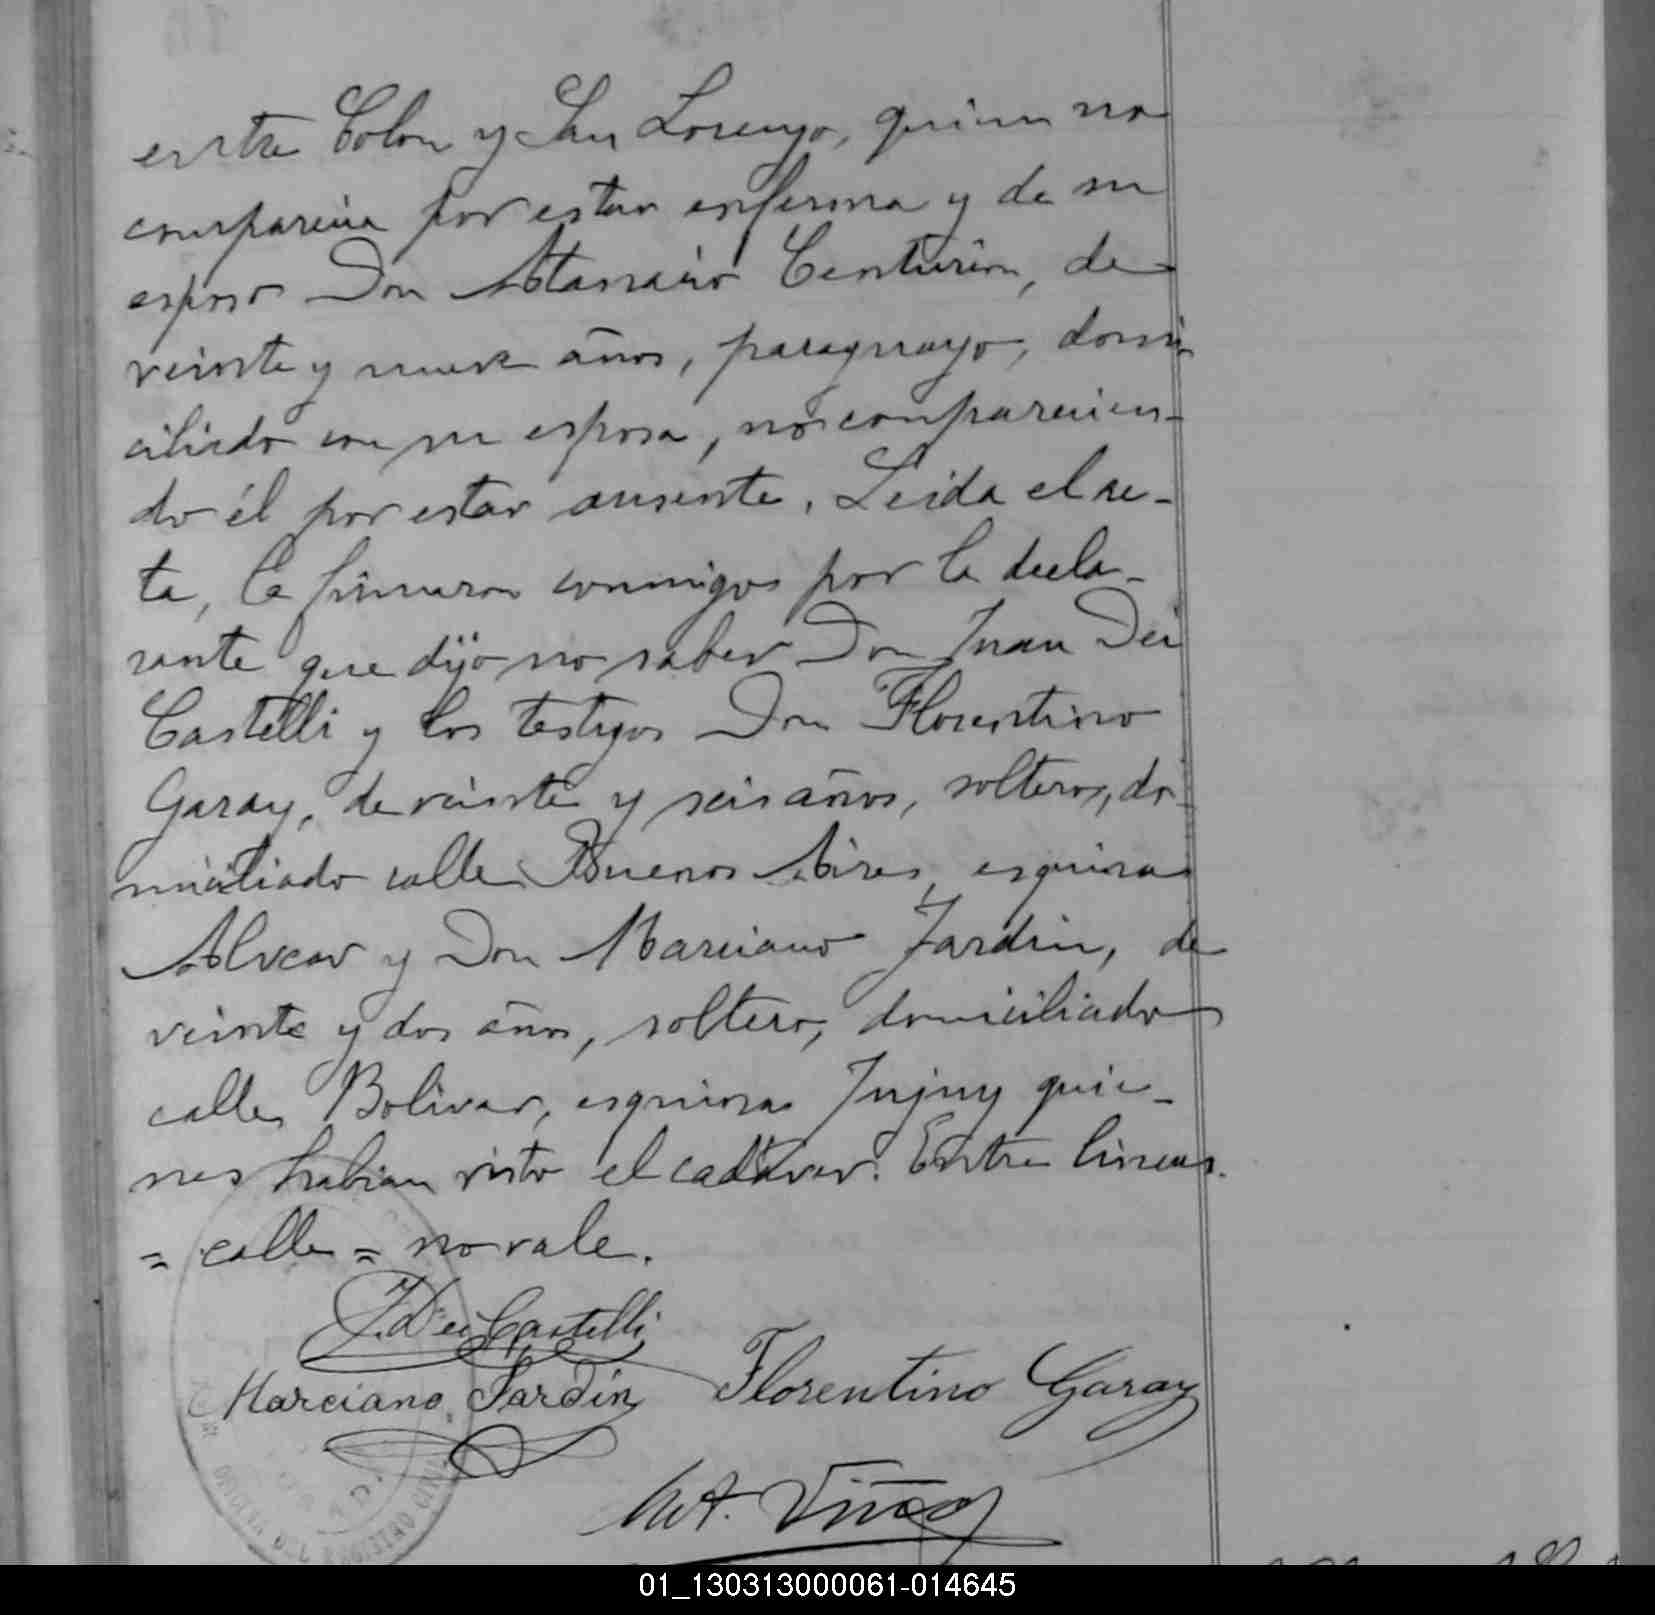 entre Colon y San Lorenzo, quien no
comparecia por estar enferma y de su
esposo Don Atanacio Centurion, de
veinte y nueve años, paraguayo, domi
ciliado con su esposa, no comparecien-
do él por estar ausente. Leida el ac-
ta, la firmaron conmigo por la decla-
rante que dijo no saber Don Juan Dei
Castelli y los testigos Don Florentino
Garay, de veinte y seis años, soltero, do-
miciliado calle Buenos Aires, esquina
Alvear y Don Marciano Jardin, de
veinte y dos años, soltero, domiciliado
calle Bolivar, esquina Jujuy quie-
nes habian visto el cadáver. Entre lineas.
= calle = no vale.
J. Dei Castelli
Marciano Jardin Florentino Garay
01_130313000061-014645